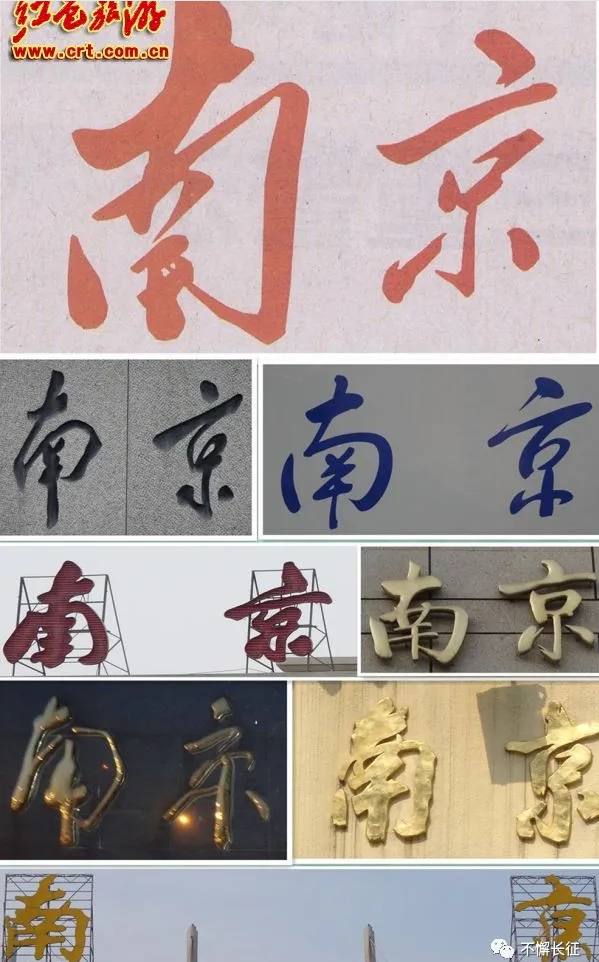 红色旅游
www.crt.com.cn
南京
南京
南京
南京
南京
南京
南京
南京
不懈长征